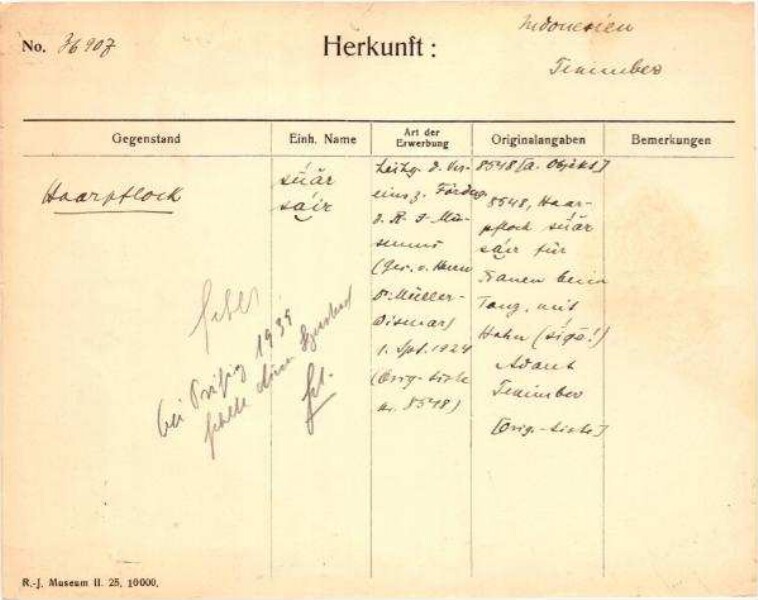 No. 36907
Herkunft:
Indonesien
Tenimber
Gegenstand
Einh. Name
Art der
Erwerbung
Originalangaben
Bemerkungen
Haarpflock
súar
sáir
Leihg. d. Ver-
eins z. Förderg.
d. R-J-Mu-
seums
(Ges. v. Herrn
Dr. Müller-
Wismar)
1. Spt. 1924
(Orig-Liste
nr. 8548)
8548 [a. Objekt]
8548, Haar-
pflock súar
sáir für
Frauen beim
Tanz, mit
Hahn
Adaut
Tenimber
[Orig.-Liste]
fehlt
bei Prüfung 1939
fehlte
R.-J. Museum II. 25. 10000.